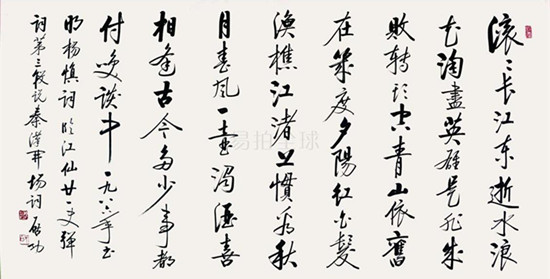 滚〻长江东逝水浪
花淘盡英雄是非成
敗转头空青山依舊
在幾度夕陽红白髮
渔樵江渚上慣看秋
月春风一壶濁酒喜
相逢古今多少事都
付笑谈中一九八六年书
明杨慎词临江仙廿一史弹
词第三段说秦漢开场词启功
易拍全球